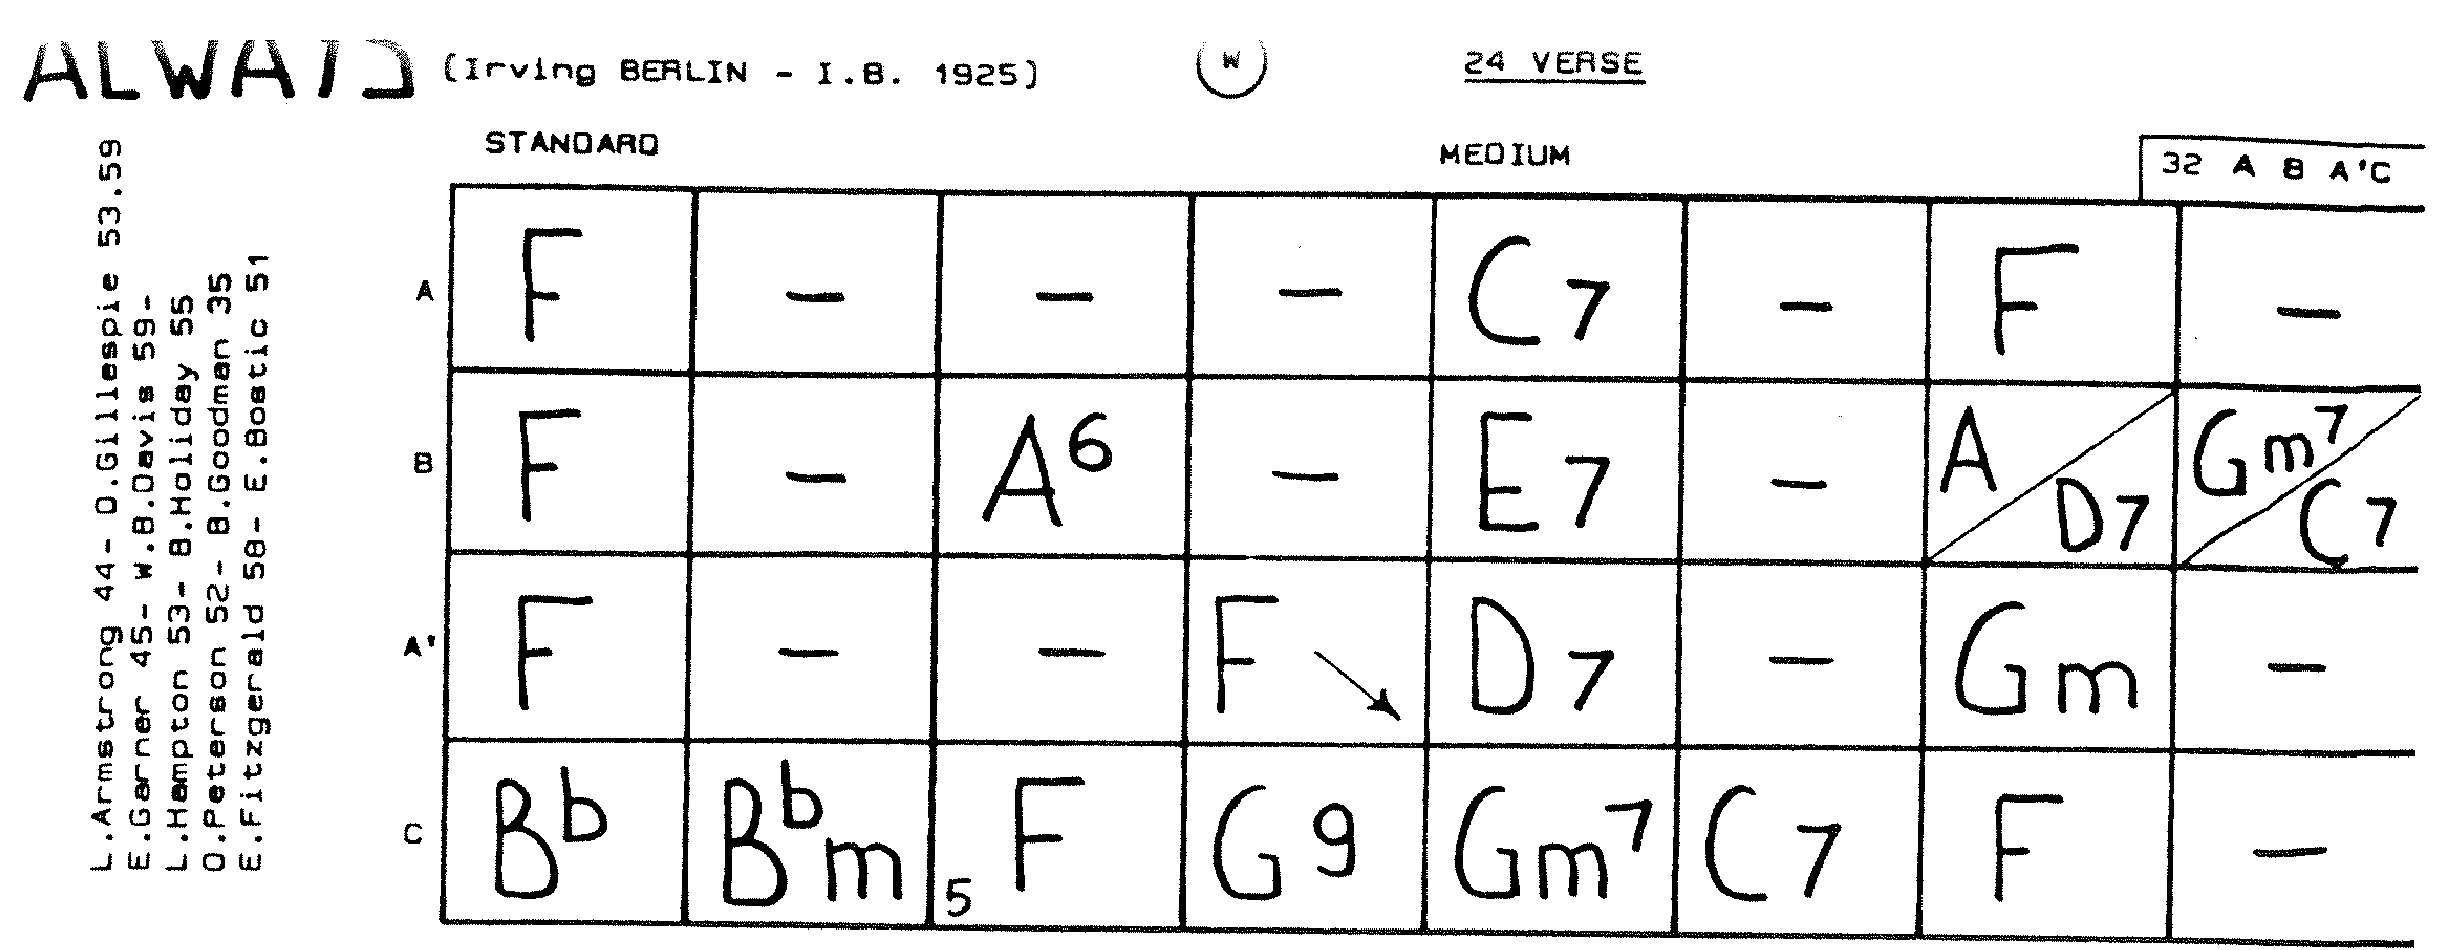 ALWAYS (Irving BERLIN - I.B. 1925) W 24 VERSE
STANDARD MEDIUM 32 A B A'C
L.Armstrong 44- D.Gillespie 53.59
E.Garner 45- W.B.Davis 59-
L.Hampton 53- B.Holiday 55
O.Peterson 52- B.Goodman 35
E.Fitzgerald 58- E.Bostic 51
A F - - - C7 - F -
B F - A6 - E7 - A D7 Gm7 C7
A' F - - F ↘ D7 - Gm -
C Bb Bbm 5 F G9 Gm7 C7 F -